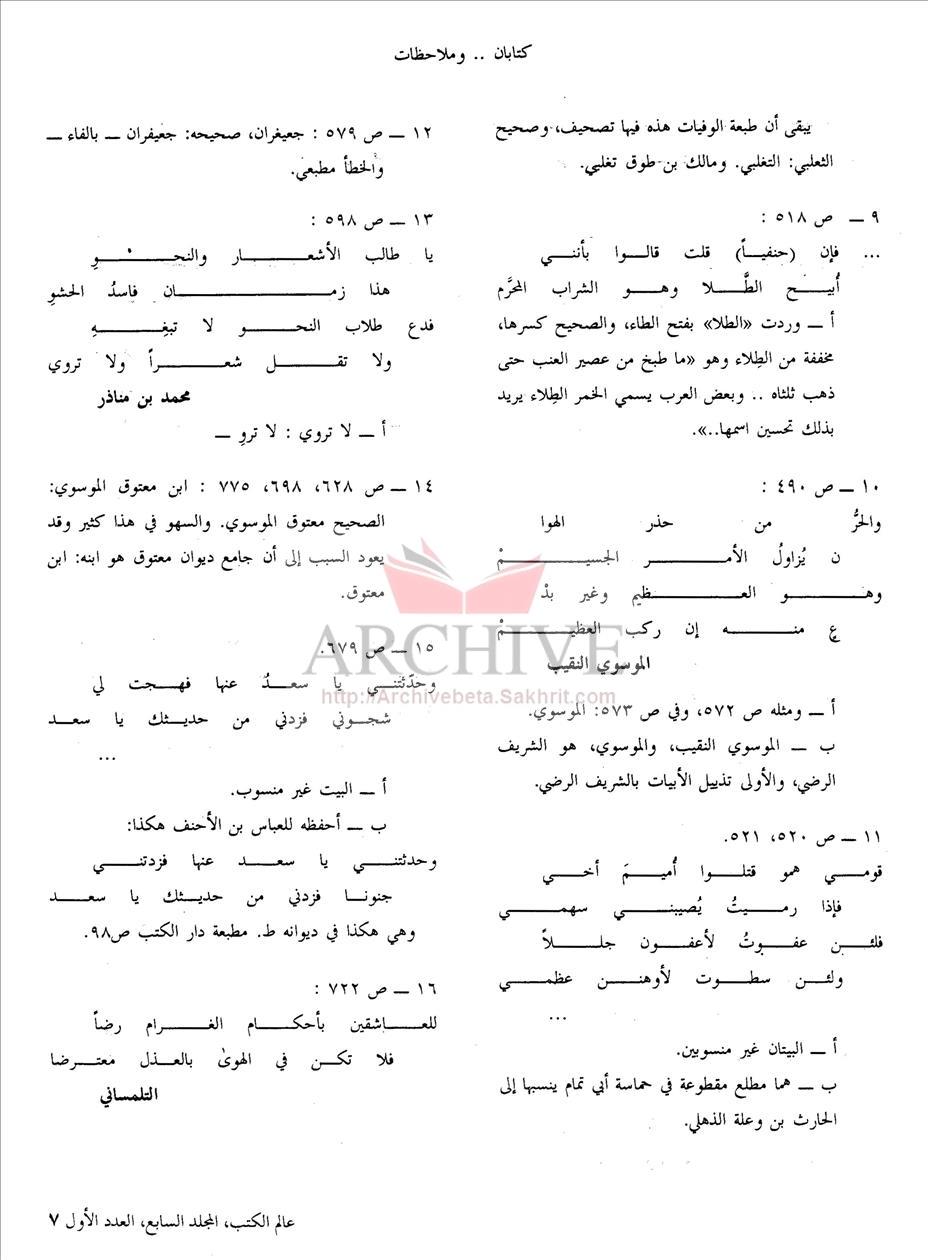 كتابان .. وملاحظات
يبقى أن طبعة الوفيات هذه فيها تصحيف، وصحيح
الثعلبي: التغلبي. ومالك بن طوق تغلبي.
٩ ـ ص ٥١٨ :
... فإن (حنفيـاً) قلت قالـوا بأننـي
أُبيـح الطَّـلا وهـو الشراب المحرَّم
أ ـ وردت «الطلا» بفتح الطاء، والصحيح كسرها،
مخففة من الطِلاء وهو «ما طبخ من عصير العنب حتى
ذهب ثلثاه .. وبعض العرب يسمي الخمر الطِلاء يريد
بذلك تحسين اسمها..».
١٠ ـ ص ٤٩٠ :
والحرُّ من حذر الهوا
ن يُزاولُ الأمـر الجسيـمْ
وهـو العـظيم وغير بدْ
عٍ منـه إن ركب العظيـمْ
الموسوي النقيب
أ ـ ومثله ص ٥٧٢، وفي ص ٥٧٣: الموسوي.
ب ـ الموسوي النقيب، والموسوي، هو الشريف
الرضي، والأولى تذييل الأبيات بالشريف الرضي.
١١ ـ ص ٥٢٠، ٥٢١.
قومـي همو قتلـوا أُميـمَ أخـي
فإذا رميـتُ يُصيبنـي سهمـي
فلئـن عفـوتُ لأعفـون جلـلاً
ولئـن سطـوت لأوهنـن عظمـي
...
أ ـ البيتان غير منسوبين.
ب ـ هما مطلع مقطوعة في حماسة أبي تمام ينسبها إلى
الحارث بن وعلة الذهلي.
١٢ ـ ص ٥٧٩ : جعيغران، صحيحه: جعيفران ـ بالفاء ـ
والخطأ مطبعي.
١٣ ـ ص ٥٩٨ :
يا طالب الأشعـار والنحـوِ
هذا زمـان فاسدُ الحشوِ
فدع طلاب النحـو لا تبغِـهِ
ولا تقـل شعـراً ولا تروي
محمد بن مناذر
أ ـ لا تروي : لا تروِ ـ
١٤ ـ ص ٦٢٨، ٦٩٨، ٧٧٥ : ابن معتوق الموسوي:
الصحيح معتوق الموسوي. والسهو في هذا كثير وقد
يعود السبب إلى أن جامع ديوان معتوق هو ابنه: ابن
معتوق.
١٥ ـ ص ٦٧٩.
وحدّثتنـي يا سعـدُ عنها فهجت لي
شجـوني فزدني من حديـثك يا سعـد
...
أ ـ البيت غير منسوب.
ب ـ أحفظه للعباس بن الأحنف هكذا:
وحدثتنـي يا سعـد عنها فزدتنـي
جنونـا فزدني من حديـثك يا سعـد
وهي هكذا في ديوانه ط. مطبعة دار الكتب ص٩٨.
١٦ ـ ص ٧٢٢ :
للعـاشقين بأحكـام الغـرام رضـاً
فلا تكـن في الهوىٰ بالعـذل معتـرضا
التلمساني
عالم الكتب، المجلد السابع، العدد الأول ٧
ARCHIVE
http://Archivebeta.Sakhrit.com